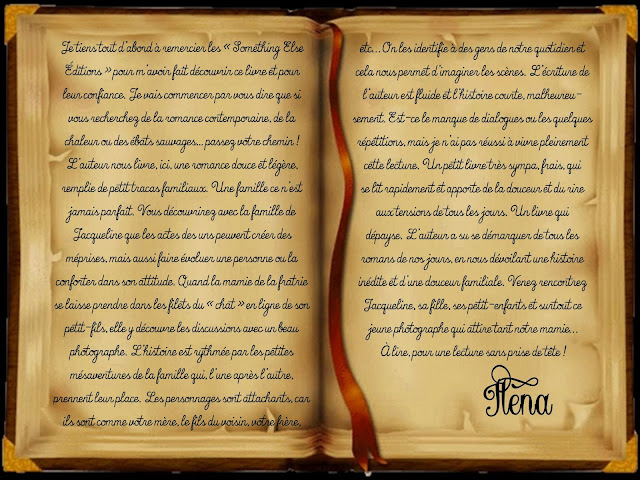 Je tiens tout d'abord à remercier les « Something Else
Éditions » pour m'avoir fait découvrir ce livre et pour
leur confiance. Je vais commencer par vous dire que si
vous recherchez de la romance contemporaine, de la
chaleur ou des ébats sauvages... passez votre chemin !
L'auteur nous livre, ici, une romance douce et légère,
remplie de petit tracas familiaux. Une famille ce n'est
jamais parfait. Vous découvrirez avec la famille de
Jacqueline que les actes des uns peuvent créer des
méprises, mais aussi faire évoluer une personne ou la
conforter dans son attitude. Quand la mamie de la fratrie
se laisse prendre dans les filets du « chat » en ligne de son
petit-fils, elle y découvre les discussions avec un beau
photographe. L'histoire est rythmée par les petites
mésaventures de la famille qui, l'une après l'autre,
prennent leur place. Les personnages sont attachants, car
ils sont comme votre mère, le fils du voisin, votre frère,
etc... On les identifie à des gens de notre quotidien et
cela nous permet d'imaginer les scènes. L'écriture de
l'auteur est fluide et l'histoire courte, malheureu-
sement. Est-ce le manque de dialogues ou les quelques
répétitions, mais je n'ai pas réussi à vivre pleinement
cette lecture. Un petit livre très sympa, frais, qui
se lit rapidement et apporte de la douceur et du rire
aux tensions de tous les jours. Un livre qui
dépayse. L'auteur a su se démarquer de tous les
romans de nos jours, en nous dévoilant une histoire
inédite et d'une douceur familiale. Venez rencontrez
Jacqueline, sa fille, ses petit-enfants et surtout ce
jeune photographe qui attire tant notre mamie...
À lire, pour une lecture sans prise de tête !